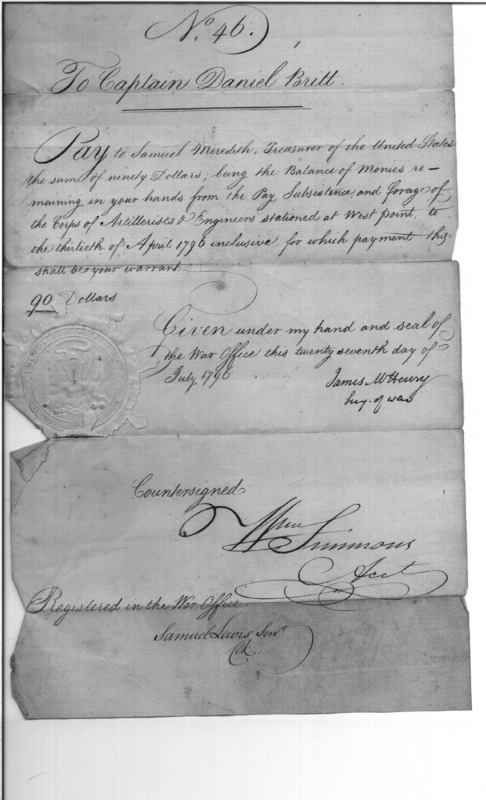 No. 46.
To Captain Daniel Britt.
Pay to Samuel Meredith, Treasurer of the United States
the sum of ninety Dollars; being the Balance of Monies re-
maining in your hands from the Pay, Subsistence and forage of
the Corps of Artillerists & Engineers stationed at West point, to
the thirtieth of April 1796 inclusive, for which payment this
shall be your warrant.
90 Dollars
Given under my hand and seal of
the War Office this twenty seventh day of
July 1796
James McHenry
Secy. of war
Countersigned
Wm Simmons
Acct
Registered in the War Office
Samuel Lewis Senr.
Clk.